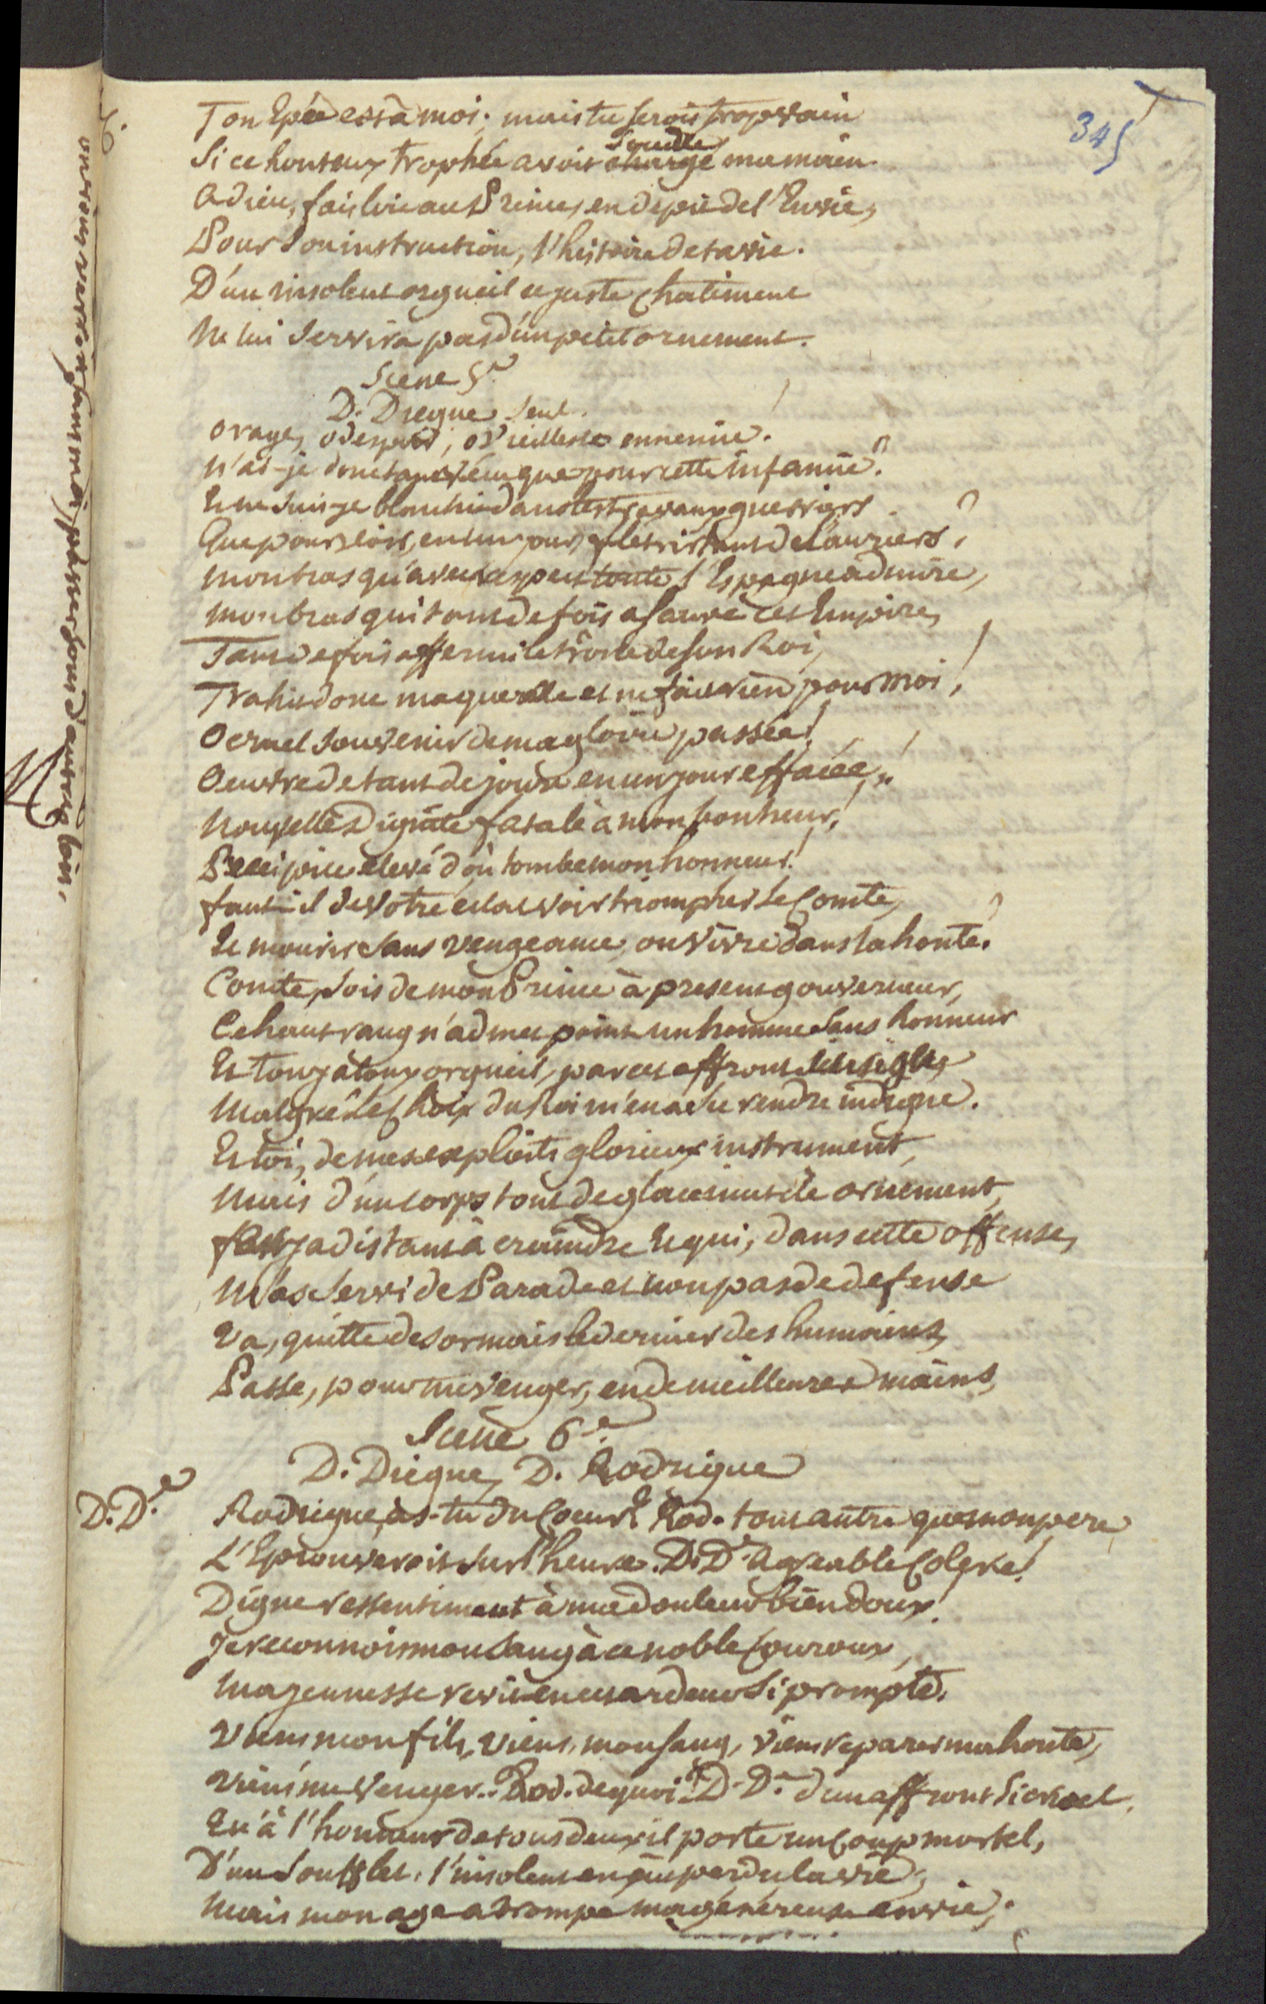 345
Ton Epée est à moi; mais tu serois trop vain
Si ce honteux trophée avoit chargé ma main.
souillé
adieu, fais lire au Prince, en depit de l'Envie,
Pour son instruction, l'histoire de ta vie.
D'un insolent orgueil ce juste chatiment
Ne lui servira pas d'un petit ornement.
Scene 5.e
D. Diegue seul.
o rage, o desespoir, o vieillesse ennemie!
n'ai-je donc tant vécu que pour cette infamie?
Et ne suis-je blanchi dans les travaux guerriers
Que pour voir, en un jour, fletrir tant de lauriers?
mon bras qu'avec respect toute l'Espagne admire,
mon bras qui tant de fois a sauvé cet Empire,
Tant de fois affermi le trône de son Roi,
Trahit donc ma querelle et ne fait rien pour moi!
O cruel souvenir de ma gloire passée!
Oeuvre de tant de jours en un jour effacée,
Nouvelle dignité fatale à mon bonheur!
Precipice elevé d'où tombe mon honneur!
faut-il de votre eclat voir triompher le Comte,
Et mourir sans vengeance, ou vivre dans la honte?
Comte, sois de mon Prince à present gouverneur,
Ce haut rang n'admet point un homme sans honneur
Et ton jaloux orgueil, par cet affront insigne,
malgré le Choix du Roi m'en a su rendre indigne.
Et toi, de mes exploits glorieux instrument,
mais d'un corps tout de glace inutile ornement,
fer jadis tant à craindre et qui, dans cette offense,
M'as servi de Parade et non pas de defense
Va, quitte desormais le dernier des humains,
Passe, pour me venger, en de meilleures mains,
Scene 6.e
D. Diegue, D. Rodrigue
D. D.e Rodrigue, as-tu du Coeur? Rod. tout autre que mon pere
L'Eprouveroit sur l'heure. D. D.e agreable Colere!
Digne ressentiment à ma douleur bien doux!
Je reconnois mon sang à ce noble Couroux,
Ma jeunesse revit en cet ardeur si prompte.
viens mon fils, viens, mon sang, viens reparer ma honte,
viens me venger. Rod. de quoi? D. D.e d'un affront si cruel
Qu'à l'honneur de tous deux il porte un Coup mortel,
D'un soufflet. l'insolent en eut perdu la vie,
Mais mon age a trompé ma généreuse envie;